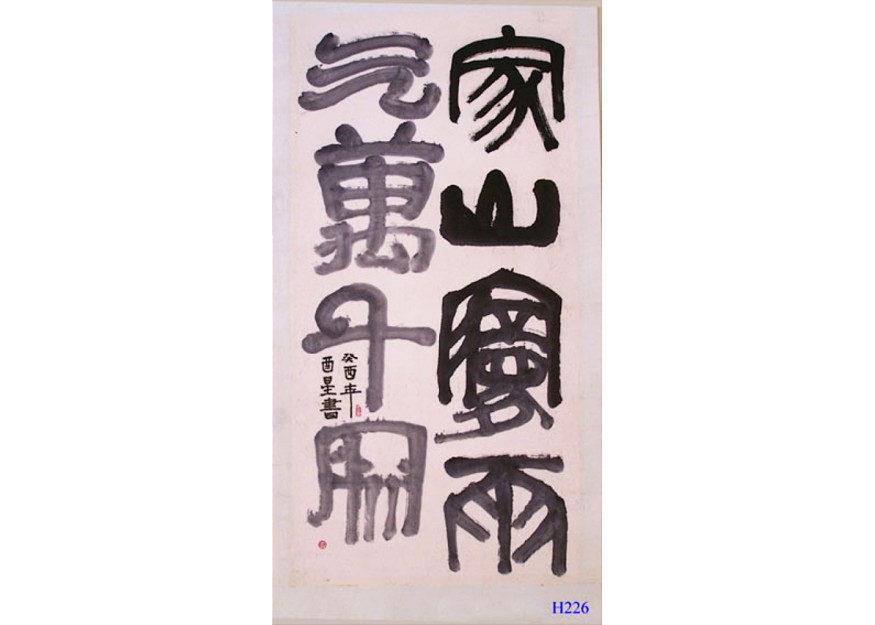 家山夢雨
萬千
癸酉年
酉星書
H226